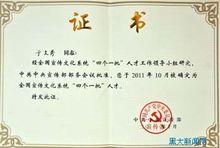 证 书
于文秀 同志:
经全国宣传文化系统“四个一批”人才工作领导小组研究,
中共中央宣传部部务会议批准,您于2011年10月被确定为
全国宣传文化系统“四个一批”人才。
特发此证。
黑大新闻网